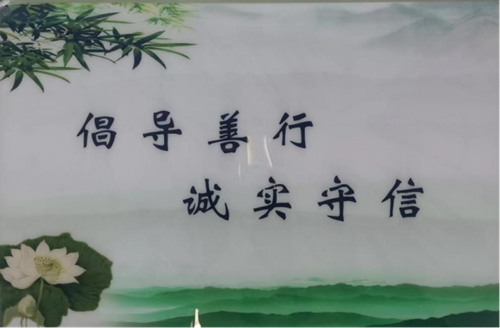 倡导善行
诚实守信